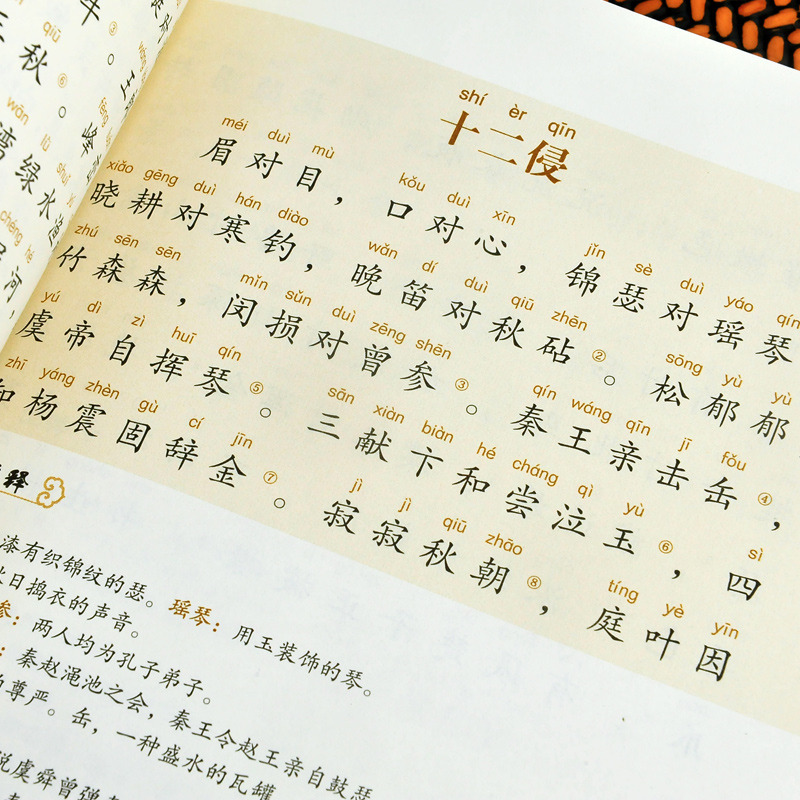 qiū
秋⑥。峰
wān lǜ shuǐ
湾绿水
chéng hé
河，
shí èr qīn
十二侵
méi duì mù kǒu duì xīn jǐn sè duì yáo qín
眉对目，口对心，锦瑟对瑶琴
xiǎo gēng duì hán diào wǎn dí duì qiū zhēn sōng yù yù
晓耕对寒钓，晚笛对秋砧②。松郁郁
zhú sēn sēn mǐn sǔn duì zēng shēn qín wáng qīn jī fǒu
竹森森，闵损对曾参③。秦王亲击缶④，
yú dì zì huī qín sān xiàn biàn hé cháng qì yù sì
虞帝自挥琴⑤。三献卞和尝泣玉⑥，四
zhī yáng zhèn gù cí jīn jì jì qiū zhāo tíng yè yīn
知杨震固辞金⑦。寂寂秋朝⑧，庭叶因
释
漆有织锦纹的瑟。瑶琴：用玉装饰的琴。
秋日捣衣的声音。
参：两人均为孔子弟子。
：秦赵渑池之会，秦王令赵王亲自鼓瑟
的尊严。缶，一种盛水的瓦罐
说虞舜曾弹